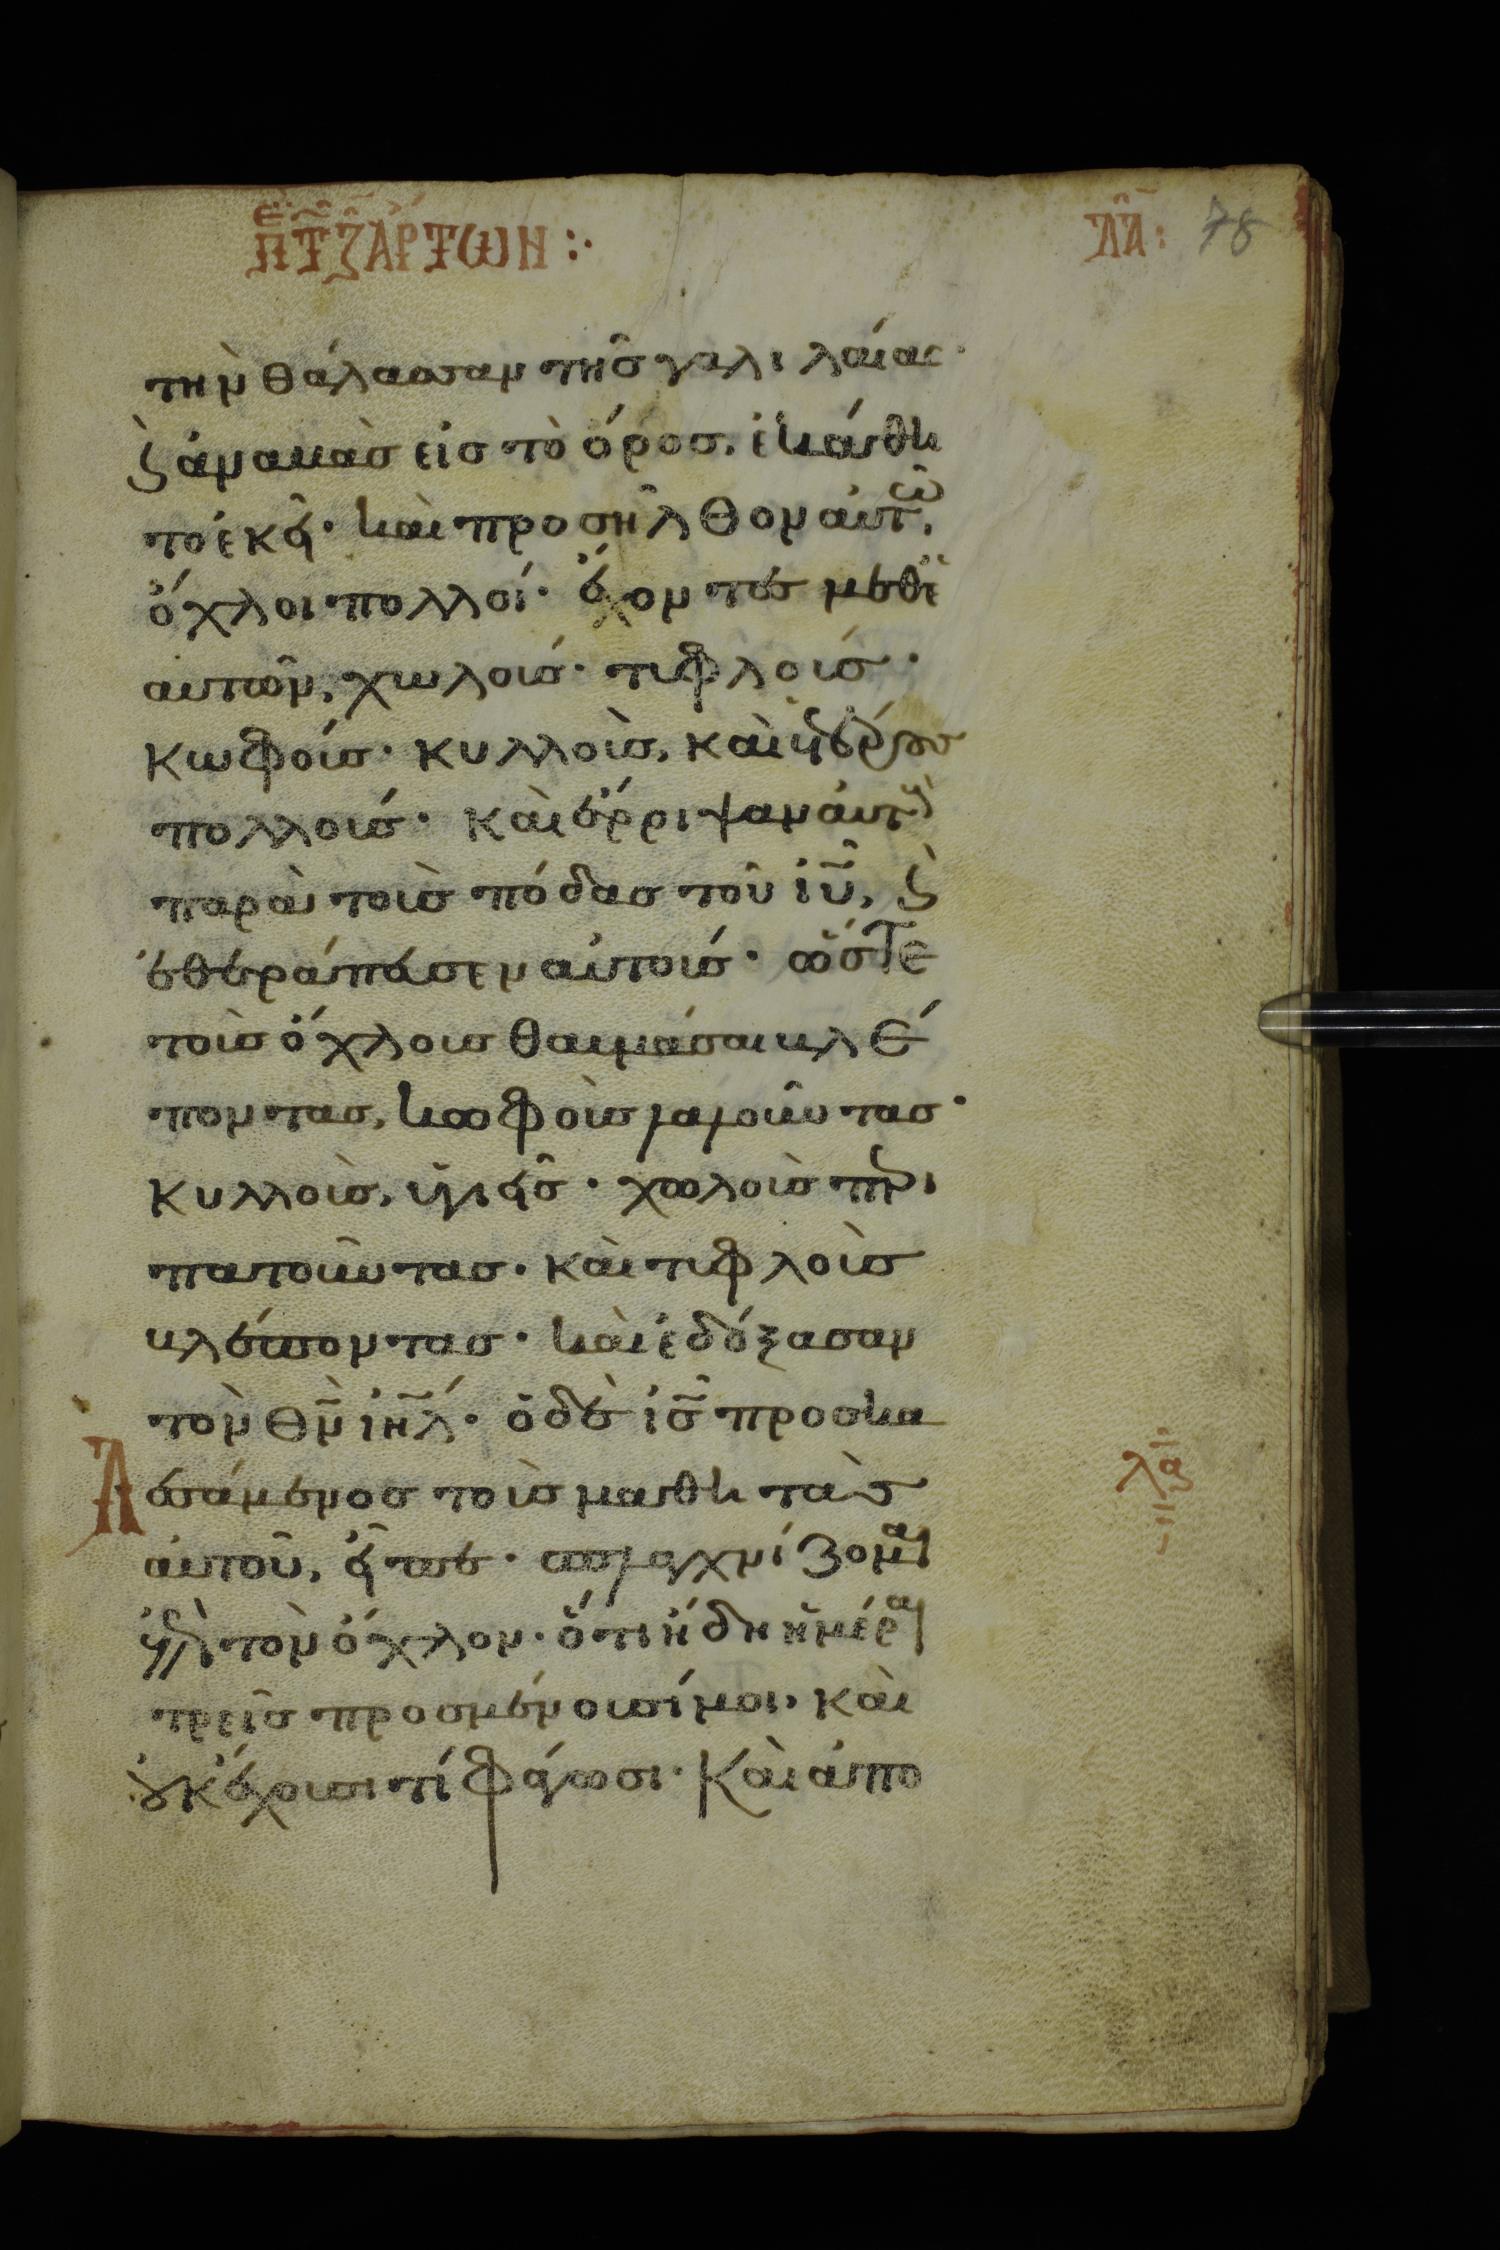 ἐπ τ ζ ἄρτων :· λδ: 78
τὴν θάλασσαν τῆσ γαλιλαίας·
ϗ ἀναβὰσ εἰσ τὸ ὄροσ, ἐκάθη
το ἐκεῖ· καὶ προσῆλθον αὐτῶ,
ὄχλοι πολλοί· ἔχοντεσ μεθ ἑ
αυτῶν, χωλούσ· τυφλούσ·
κωφούσ· κυλλοὺσ, καὶ ἑτέρουσ
πολλούσ· καὶ ἔρριψαν αὐτοὺσ
παρὰ τοὺσ πόδασ τοῦ ιυ, ϗ
ἐθεράπευσεν αὐτούσ· ὥστε
τοὺσ ὄχλουσ θαυμάσαι βλέ
πόντασ, κωφοὺσ λαλοῦντασ·
κυλλοὺσ, ὑγιεῖσ· χωλοὺσ περι
πατοῦντασ· καὶ τυφλοὺσ
βλέποντασ· καὶ ἐδόξασαν
τὸν θν ιηλ· ὁ δὲ ισ προσκα
λεσάμενοσ τοὺσ μαθητὰσ
αὐτοῦ, εἶπε· σπλαγχνίζομαι
ἐπὶ τὸν ὄχλον· ὅτι ἤδη ἡμέραι
τρεῖσ προσμένουσί μοι, καὶ
οὐκ ἔχουσι τί φάγωσι· καὶ ἀπο